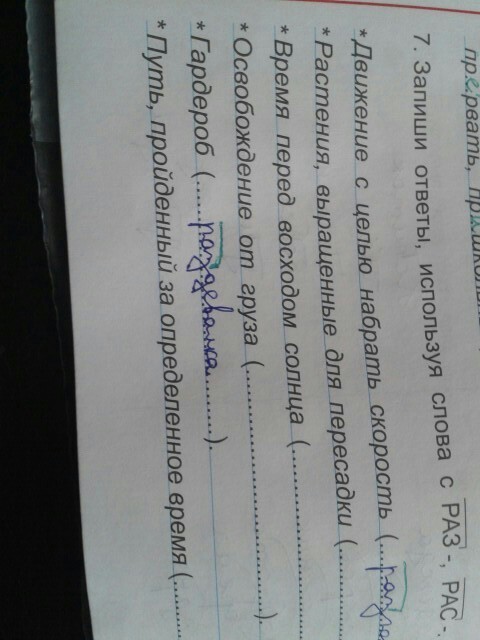 пр е рвать, пр
7. Запиши ответы, используя слова с РАЗ -, РАС -.
* Движение с целью набрать скорость (...
* Растения, выращенные для пересадки (...............
* Время перед восходом солнца (.................................
* Освобождение от груза (.................................)
* Гардероб (......раздевалка.........).
* Путь, пройденный за определенное время (......